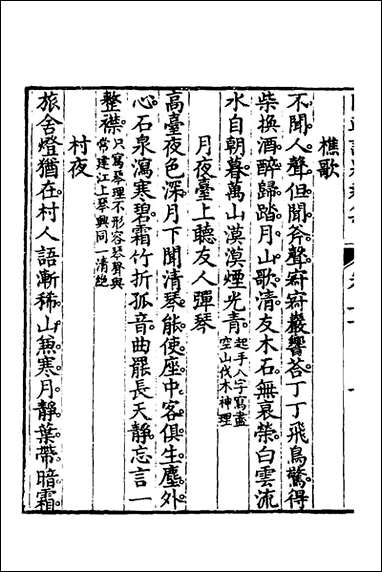 樵歌
不聞人聲但聞斧聲寂寂巖響荅丁丁飛鳥驚得
柴換酒醉歸踏月山歌清友木石無哀榮白雲流
水自朝暮萬山漠漠煙光青起手八字寫盡空山伐木神理
月夜臺上聽友人彈琴
高臺夜色深月下聞清琴能使座中客俱生塵外
心石泉瀉寒碧霜竹折孤音曲罷長天靜忘言一
整襟只寫琴理不形容琴聲與常建江上琴興同一清絕
村夜
旅舍燈猶在村人語漸稀山兼寒月靜葉帶暗霜